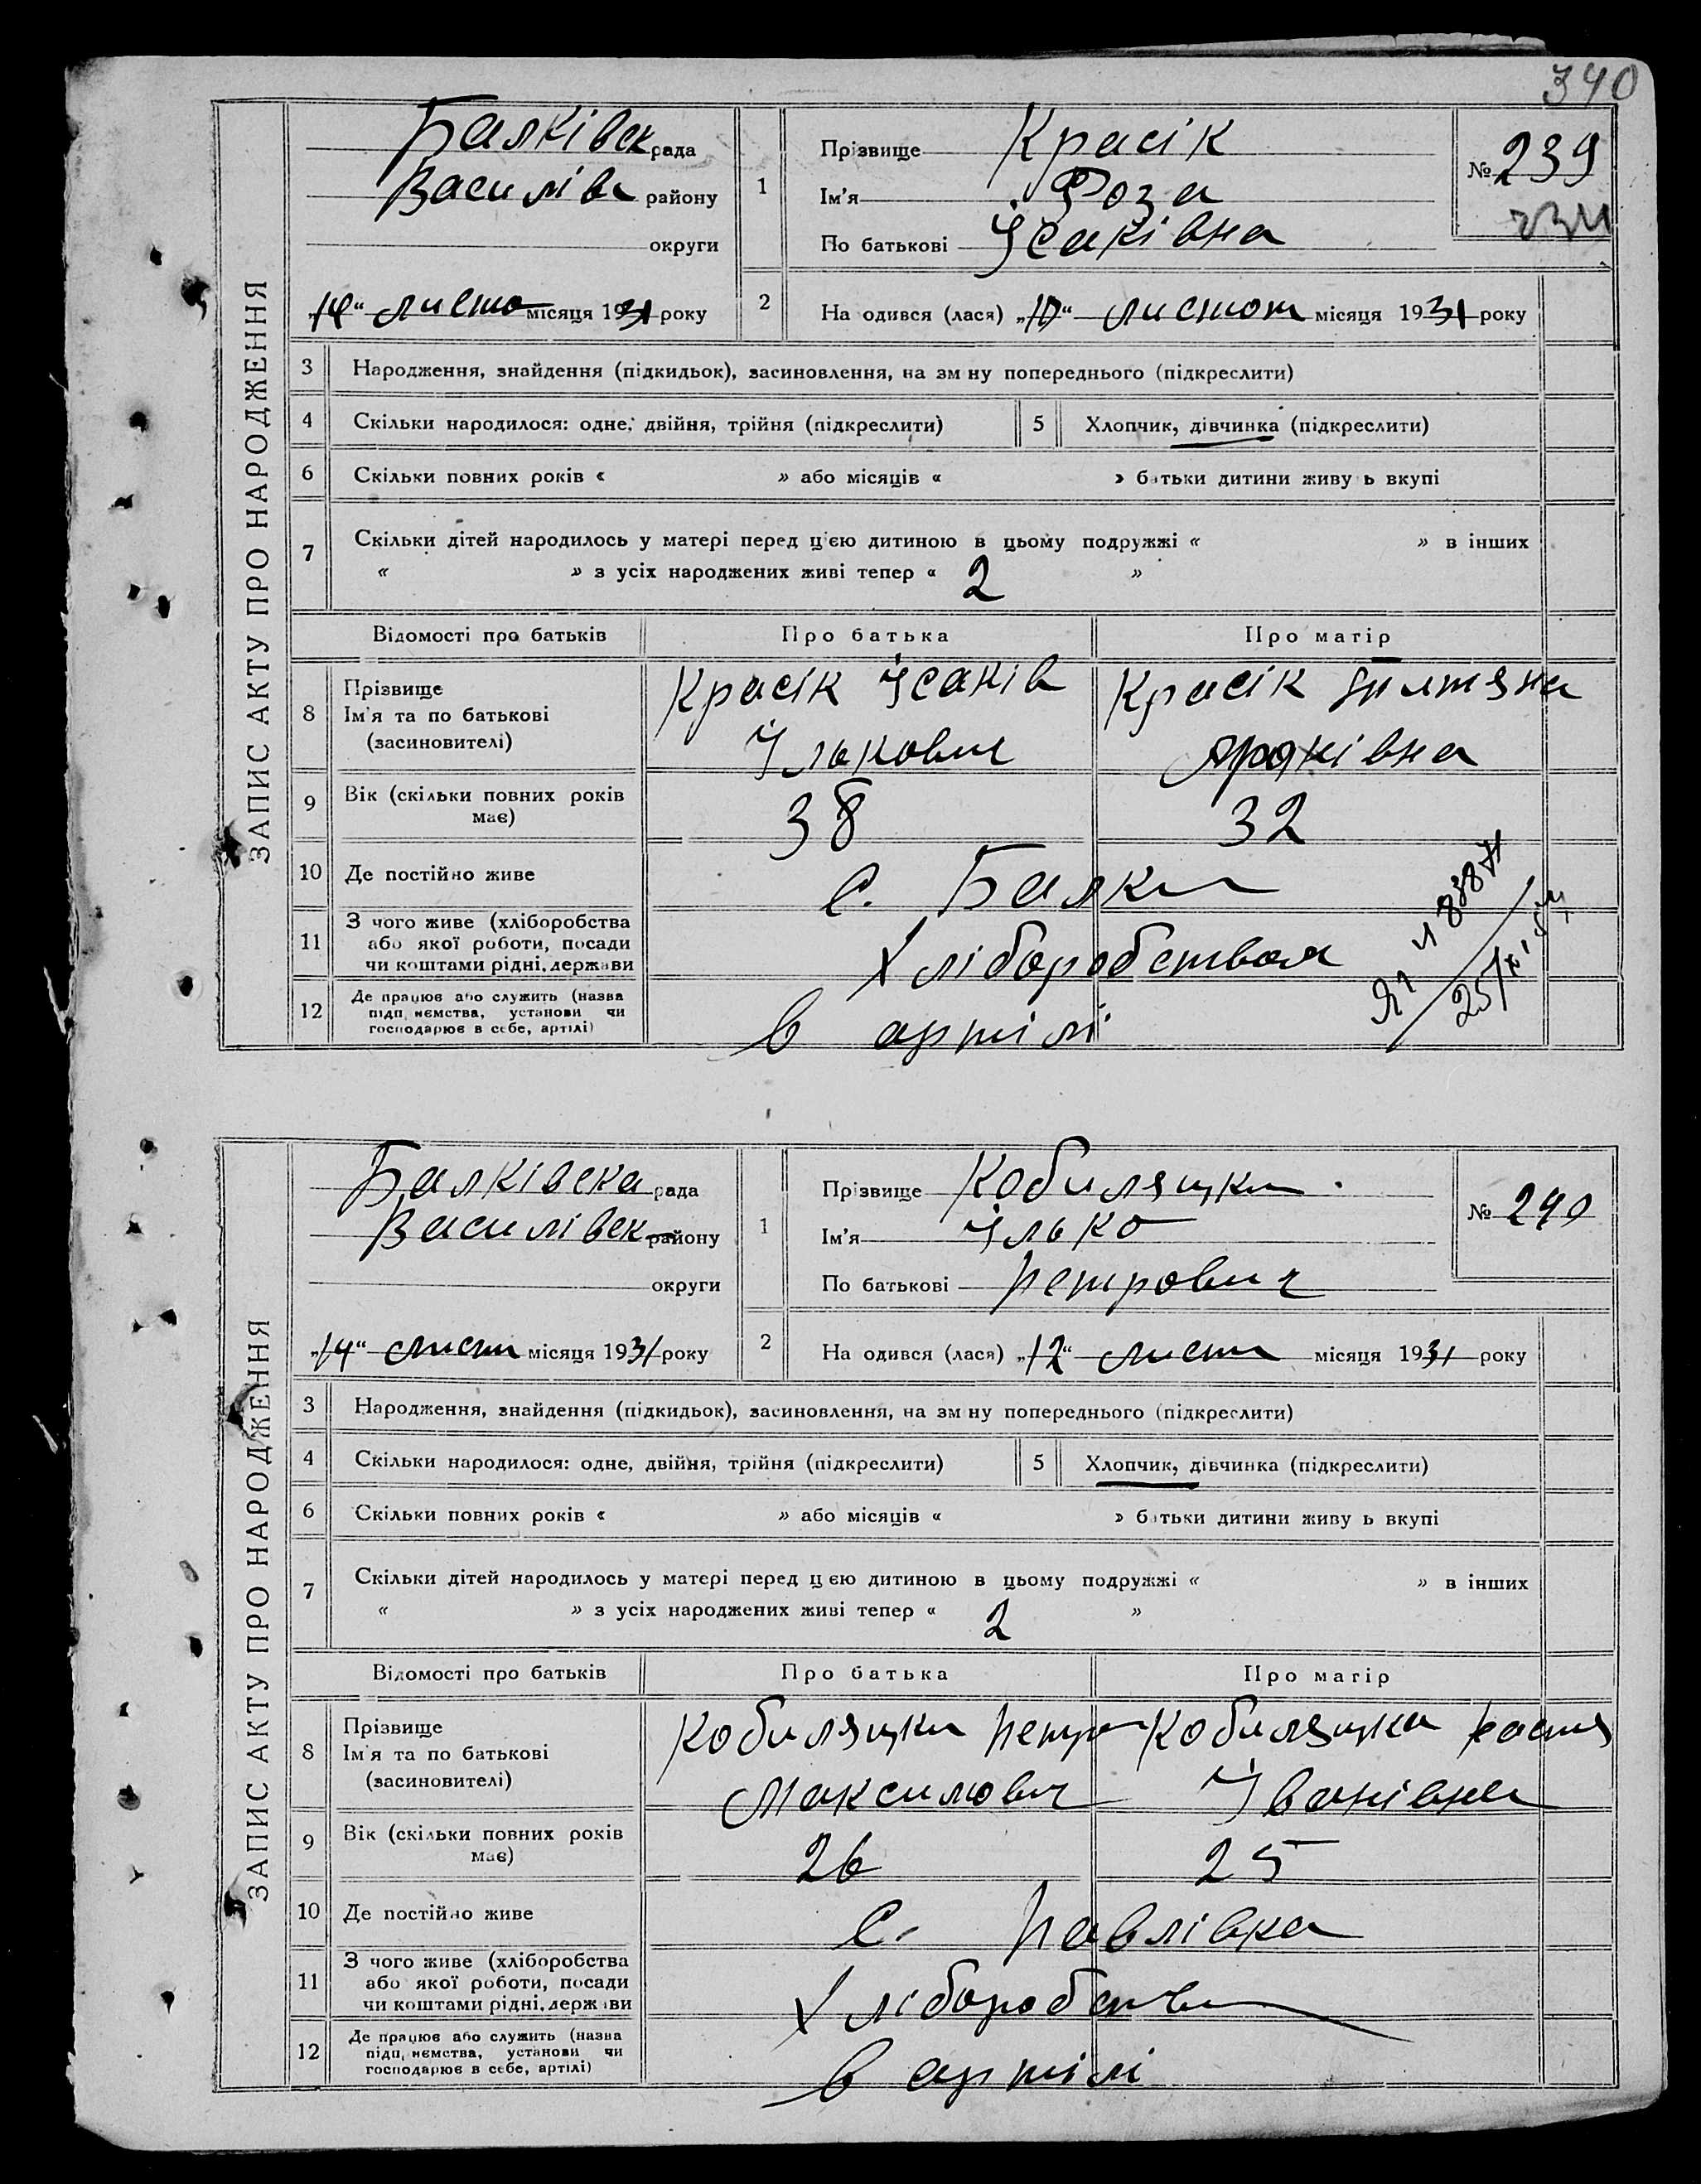 340
ЗАПИС АКТУ ПРО НАРОДЖЕННЯ
Балківськ рада
Василівс району
округи
„14“ листо місяця 1931 року
1
Прізвище Красік
Ім'я Роза
По батькові Ісаківна
№ 239
2
На одився (лася) „10“ листоп місяця 1931 року
3 Народження, знайдення (підкидьок), засиновлення, на зм ну попереднього (підкреслити)
4 Скільки народилося: одне, двійня, трійня (підкреслити) 5 Хлопчик, дівчинка (підкреслити)
6 Скільки повних років « » або місяців « » батьки дитини живу ь вкупі
7 Скільки дітей народилось у матері перед цією дитиною в цьому подружжі « » в інших
« » з усіх народжених живі тепер « 2 »
Відомості про батьків Про батька Про матір
8 Прізвище
Ім'я та по батькові
(засиновителі)
Красік Ісаків
Ількович
Красік
9 Вік (скільки повних років
має)
38 32
10 Де постійно живе с. Балки
11 З чого живе (хліборобства
або якої роботи, посади
чи коштами рідні, держави
Хліборобством
12 Де працює або служить (назва
підп иємства, установи чи
господарює в себе, артілі)
в артілі
ЗАПИС АКТУ ПРО НАРОДЖЕННЯ
Балківска рада
Василівск району
округи
„14“ листо місяця 1931 року
1
Прізвище Кобиляцки
Ім'я Ілько
По батькові Петрович
№ 240
2
На одився (лася) „12“ листо місяця 1931 року
3 Народження, знайдення (підкидьок), засиновлення, на зм ну попереднього (підкреслити)
4 Скільки народилося: одне, двійня, трійня (підкреслити) 5 Хлопчик, дівчинка (підкреслити)
6 Скільки повних років « » або місяців « » батьки дитини живу ь вкупі
7 Скільки дітей народилось у матері перед цією дитиною в цьому подружжі « » в інших
« » з усіх народжених живі тепер « 2 »
Відомості про батьків Про батька Про матір
8 Прізвище
Ім'я та по батькові
(засиновителі)
Кобиляцки Петро
Максимович
Кобиляцка
Іванівна
9 Вік (скільки повних років
має)
26 25
10 Де постійно живе с. Павлівка
11 З чого живе (хліборобства
або якої роботи, посади
чи коштами рідні, держ ви
Хліборобств
12 Де працює або служить (назва
підп иємства, установи чи
господарює в себе, артілі)
в артілі